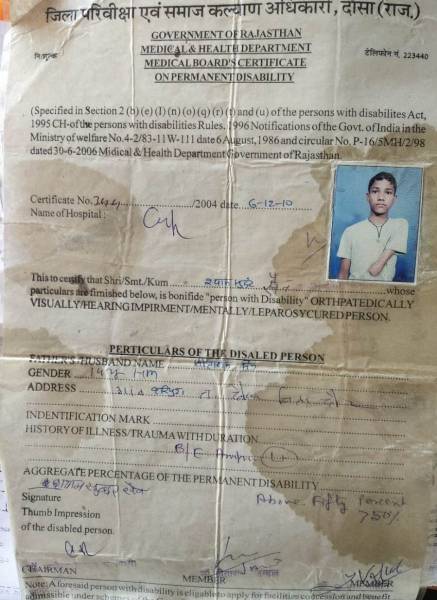 जिला परिवीक्षा एवं समाज कल्याण अधिकारी, दौसा (राज.)
GOVERNMENT OF RAJASTHAN
MEDICAL & HEALTH DEPARTMENT
नि:शुल्क
टेलिफोन नं. 223440
MEDICAL BOARD'S CERTIFICATE
ON PERMANENT DISABILITY
(Specified in Section 2 (b)(e)(l)(n)(o)(q)(r)(t) and (u) of the persons with disabilites Act,
1995 CH-of the persons with disabilities Rules. 1996 Notifications of the Govt. of India in the
Ministry of welfare No.4-2/83-11W-111 date 6 August, 1986 and circular No. P-16/5MH/2/98
dated 30-6-2006 Midical & Health Department Government of Rajasthan.
Certificate No. /2004 date 6-12-10
Name of Hospital :
This to certify that Shri/Smt./Kum whose
particulars are firnished below, is bonifide "person with Disability" ORTHPATEDICALLY
VISUALLY/HEARING IMPIRMENT/MENTALLY/LEPAROSY CURED PERSON.
PERTICULARS OF THE DISALED PERSON
FATHER'S /HUSBAND NAME
GENDER
ADDRESS
INDENTIFICATION MARK
HISTORY OF ILLNESS/TRAUMA WITH DURATION
B/E
AGGREGATE PERCENTAGE OF THE PERMANENT DISABILITY
Above Fifty Percent
Signature
Thumb Impression
of the disabled person.
CHAIRMAN MEMBER MEMBER
Note: A foresaid person with disability is eligable to apply for facilities concession and benefit
admissible under schemes of the